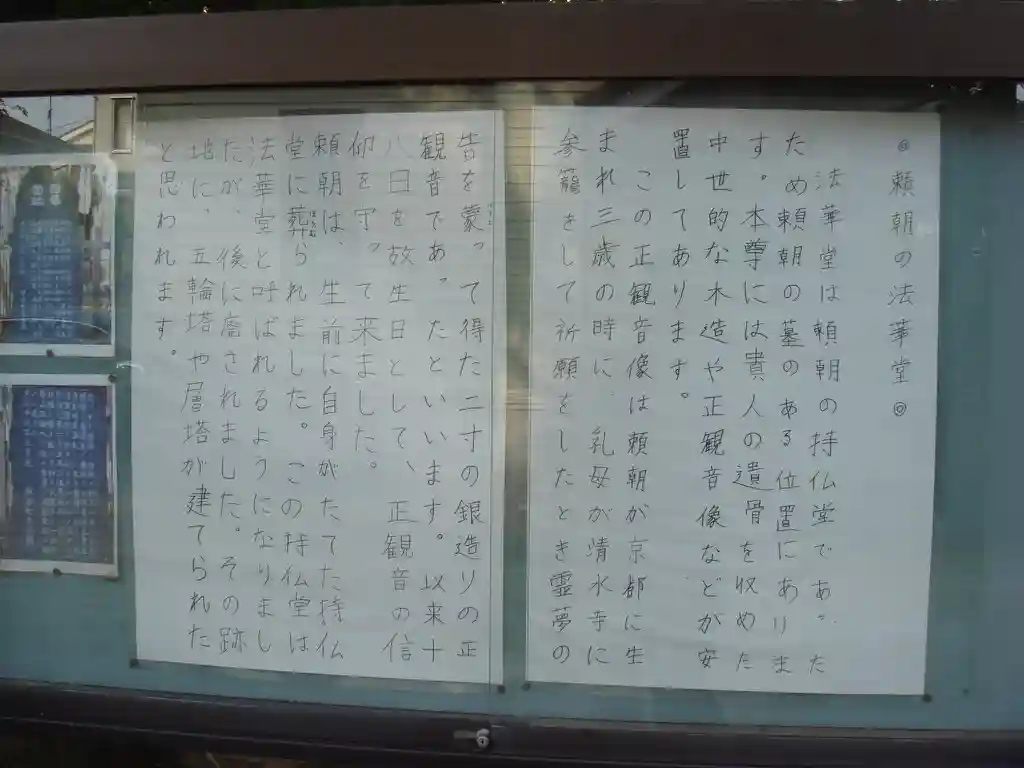 ◎頼朝の法華堂◎
法華堂は頼朝の持仏堂であった
ため頼朝の墓のある位置にありま
す。本尊には貴人の遺骨を収めた
中世的な木造や正観音像などが安
置してあります。
この正観音像は頼朝が京都に生
まれ三歳の時に、乳母が清水寺に
参籠をして祈願をしたとき霊夢の
告を蒙って得た二寸の銀造りの正
観音であったといいます。以来十
八日を放生日として、正観音の信
仰を守って来ました。
頼朝は、生前に自身がたてた持仏
堂に葬られました。この持仏堂は
法華堂と呼ばれるようになりまし
たが、後に廃されました。その跡
地に、五輪塔や層塔が建てられた
と思われます。